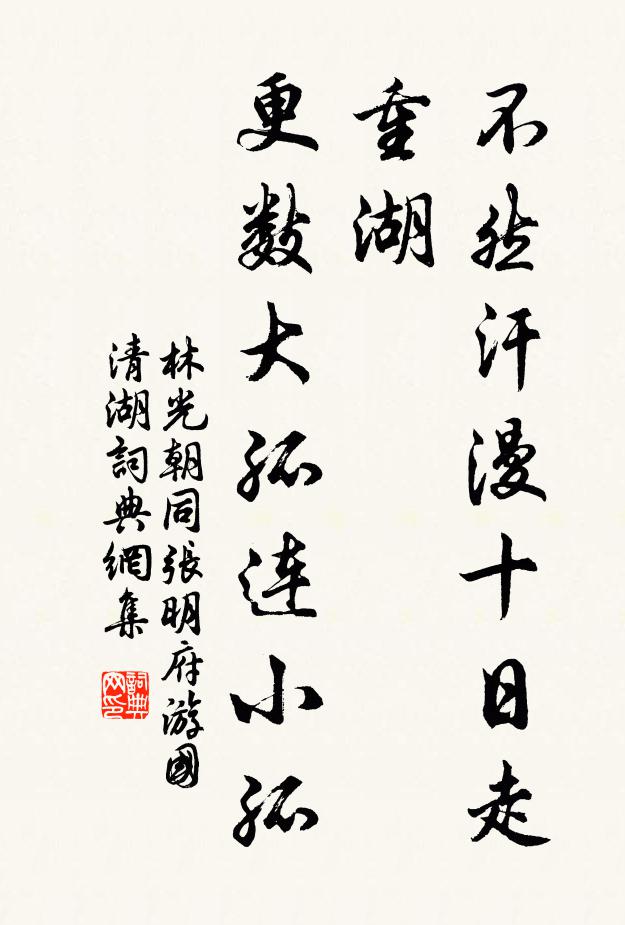 不然汗漫十日走
重湖
更數大孤連小孤
林光朝同張明府游國
清湖詞典網集
詞典
网印